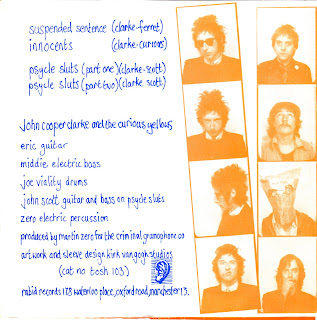 suspended sentence (clarke-ferret)
innocents (clarke-curious)
psycle sluts (part one)(clarke-scott)
psycle sluts (part two)(clarke scott)
John cooper clarke and the curious yellows
eric guitar
middie electric bass
joe viality drums
john scott guitar and bass on psycle sluts
zero electric percussion
produced by martin zero for the criminal gramophone co
art work and sleeve design kirk van gogh studios
(cat no tosh 103)
rabid records 178 waterloo place, oxford road, manchester 13.